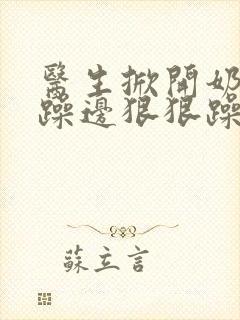 醫生掀開奶
躁邊狠狠躁
蘇立言